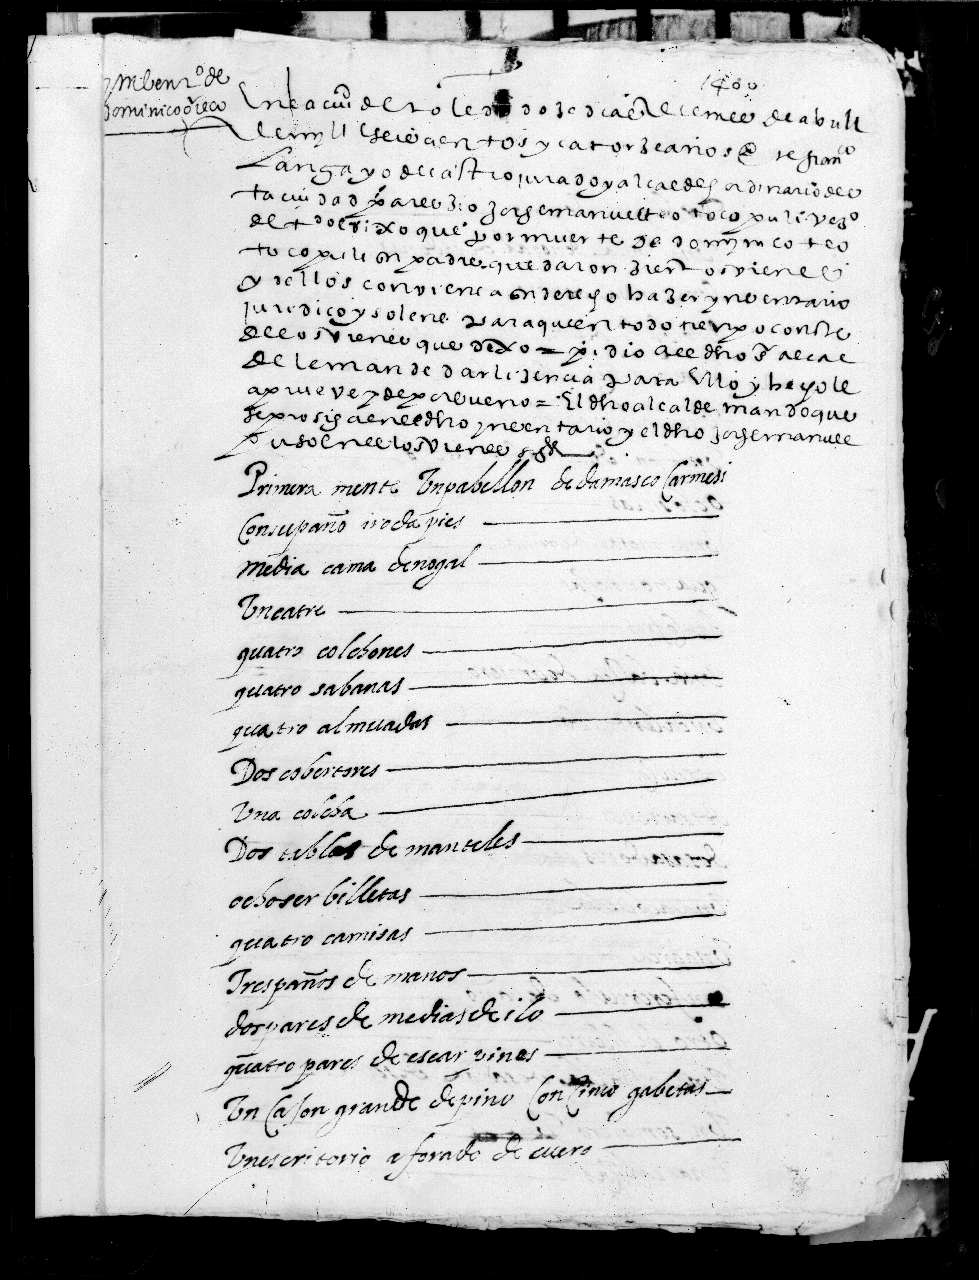 Ynbenro de
dominico greco
1400
En la ciud de toledo doze dias del mes de abril
de myll e seis cientos y catorze años ante franco
Langayo de castro jurado y alcalde hordinario de
ta ciudad parezio Jorge manuel teotocopuli vezo
de tdo e dixo que por muerte de domynico teo
tocopuli su padre quedaron ziertos vienes
y dellos conviene a su derecho hazer ynventario
juridico y solene para que en todo tienpo conste
de los vienes que dexo = pidio al dho sr alcal
de le mande dar lizencia para ello y he yo le
aprueve = El dho alcalde mando que
se prosiga en el dho ynventario y el dho Jorge manuel
puso en el los vienes sigtes
Primera mente Un pabellon de damasco Carmesi
Con su paño i rodapies
media cama de nogal
Un catre
quatro colchones
quatro sabanas
quatro almuadas
Dos cobertores
Una colcha
Dos tablas de manteles
ocho serbilletas
quatro camisas
Tres paños de manos
dos pares de medias de ilo
quatro pares de escarpines
Un Cajon grande de pino Con Cinco gabetas
Un escritorio aforado de cuero